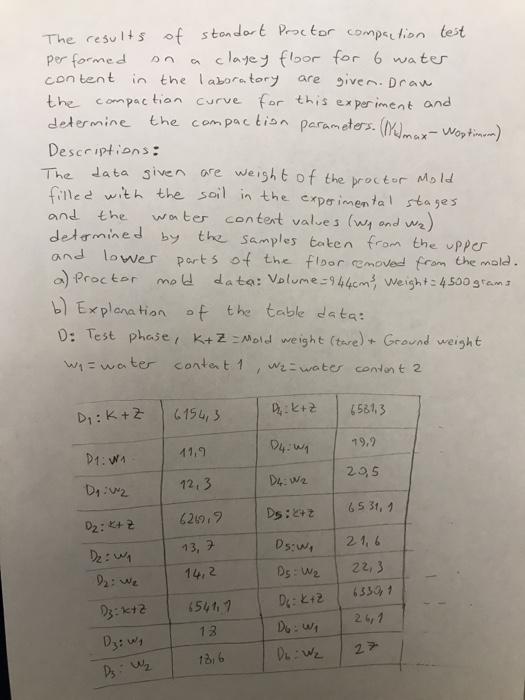 The results of standart Proctor compaction test
performed on a clayey floor for 6 water
content in the laboratory are given. Draw
the compaction curve for this experiment and
determine the compaction parameters. (γk)max - Woptimum)
Descriptions:
The data given are weight of the proctor Mold
filled with the soil in the experimental stages
and the water content values (w1 and w2)
determined by the samples taken from the upper
and lower parts of the floor removed from the mold.
a) Proctor mold data: Volume=944cm3, Weight=4500 grams
b) Explanation of the table data:
D: Test phase, K+Z = Mold weight (tare) + Ground weight
w1 = water content 1, w2 = water content 2
D1: K+Z 6154,3 D4: K+Z 6581,3
D1: w1 11,9 D4: w1 19,9
D1: w2 12,3 D4: w2 20,5
D2: K+Z D5: K+Z 6531,1
D2: w1 13,7 D5: w1 21,6
D2: w2 14,2 D5: w2 22,3
D3: K+Z D6: K+Z
D3: w1 18 D6: w1 26,1
D3: w2 18,6 D6: w2 27